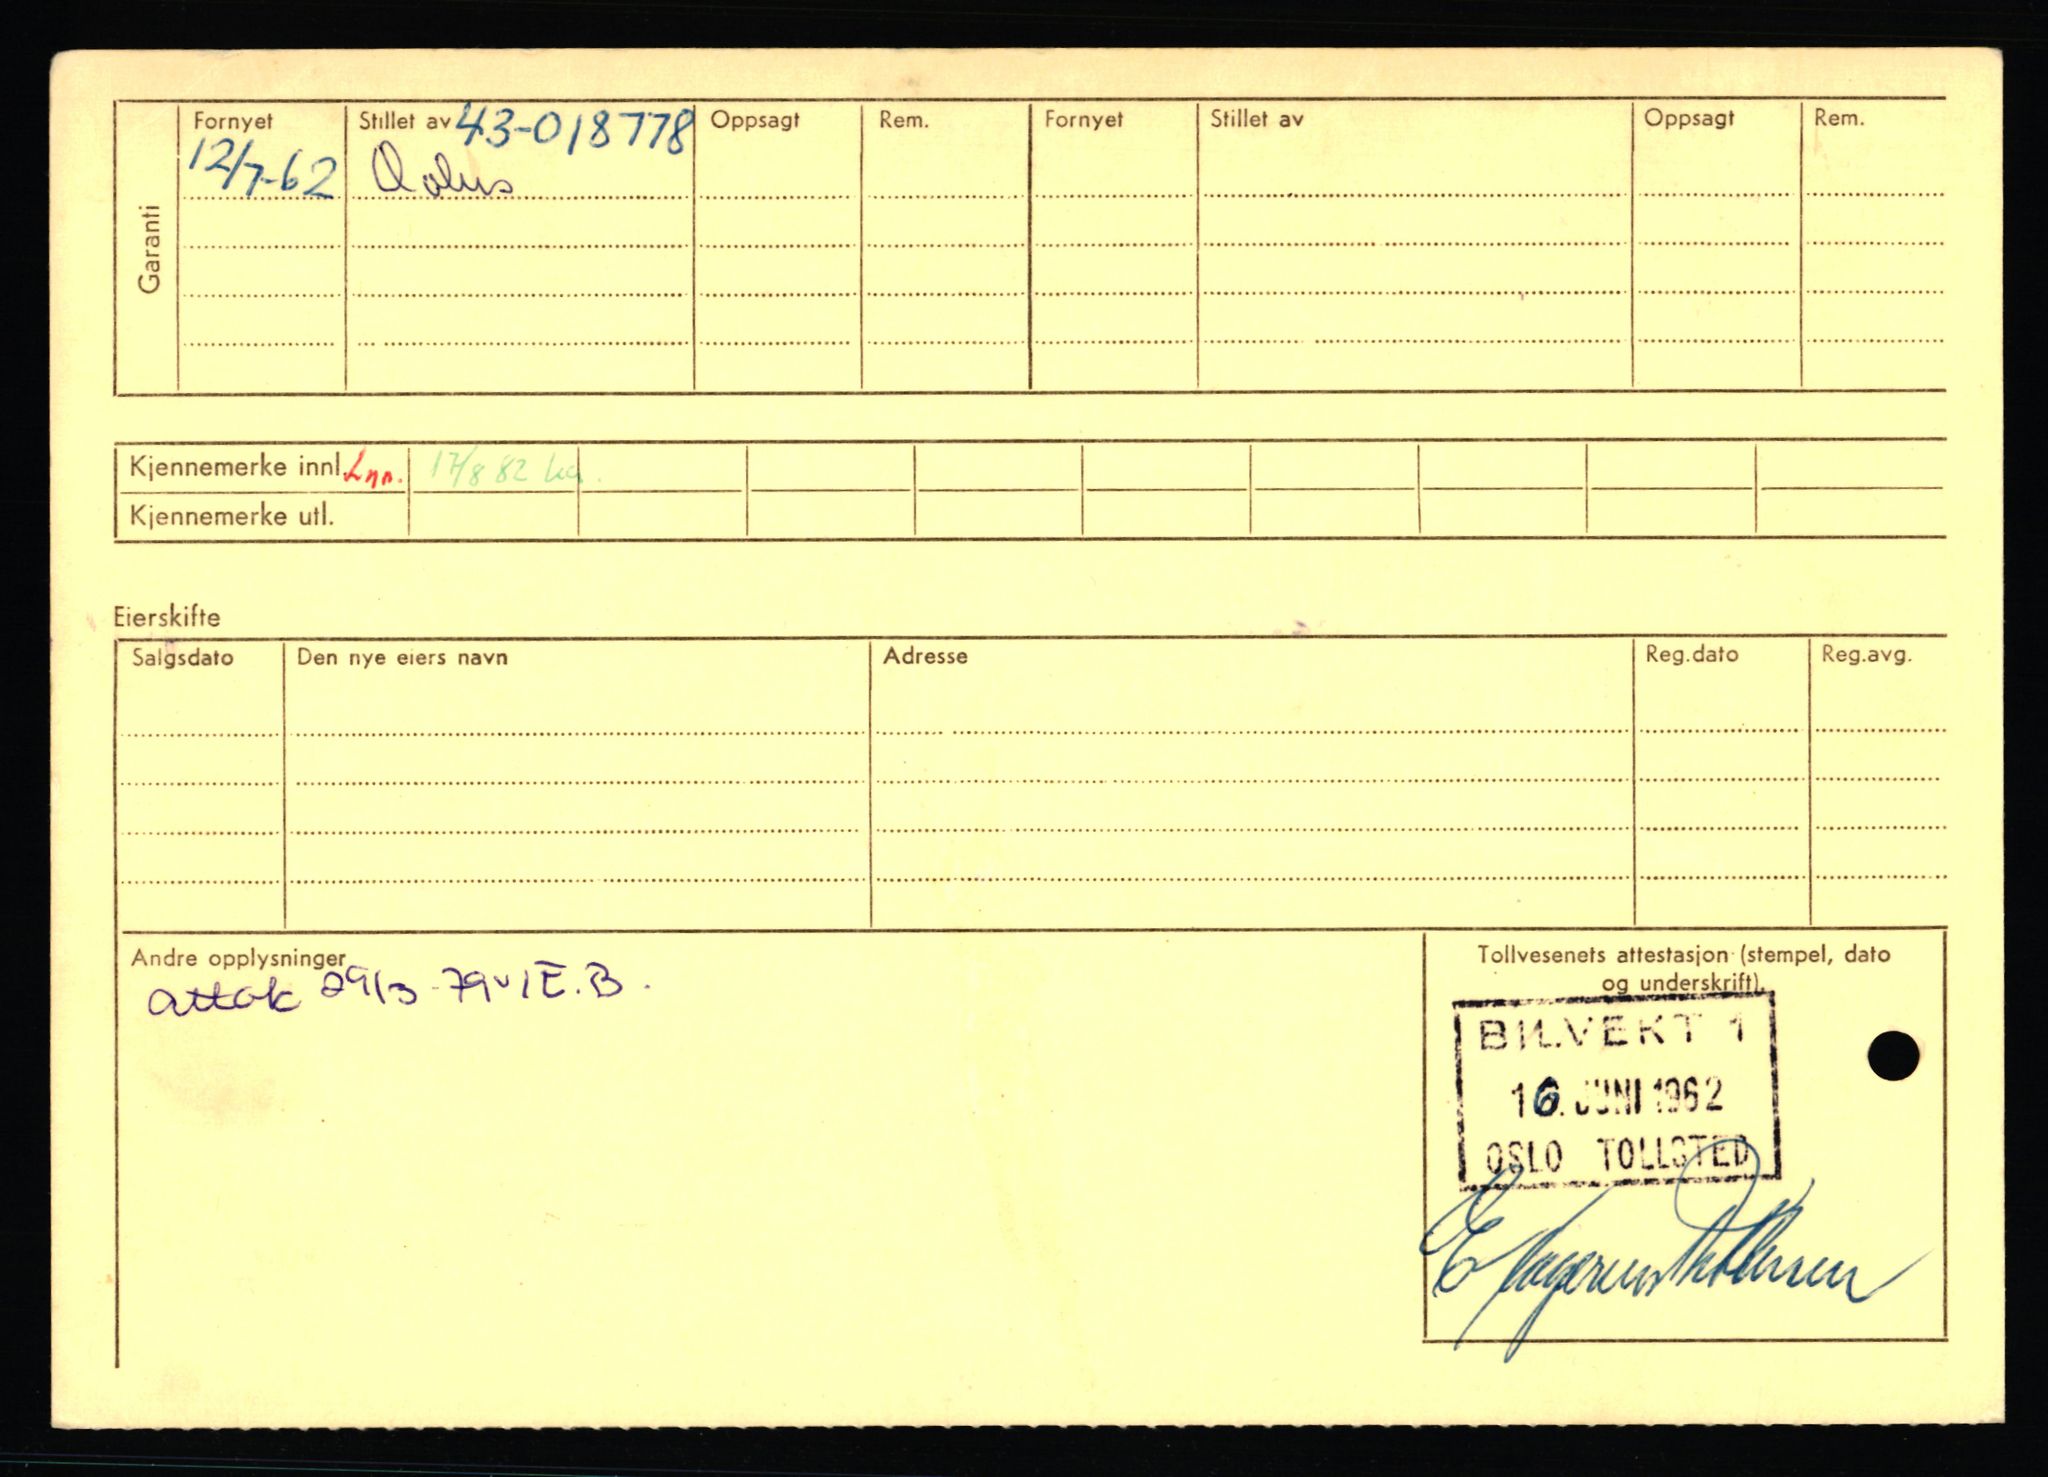 Garanti
Fornyet Stillet av 43-018778 Oppsagt Rem. Fornyet Stillet av Oppsagt Rem.
12/7-62
Kjennemerke innl. 17/8 82
Kjennemerke utl.
Eierskifte
Salgsdato Den nye eiers navn Adresse Reg.dato Reg.avg.
Andre opplysninger
attok 29/3-79 v/E.B.
Tollvesenets attestasjon (stempel, dato
og underskrift)
BILVEKT 1
16. JUNI 1962
OSLO TOLLSTED